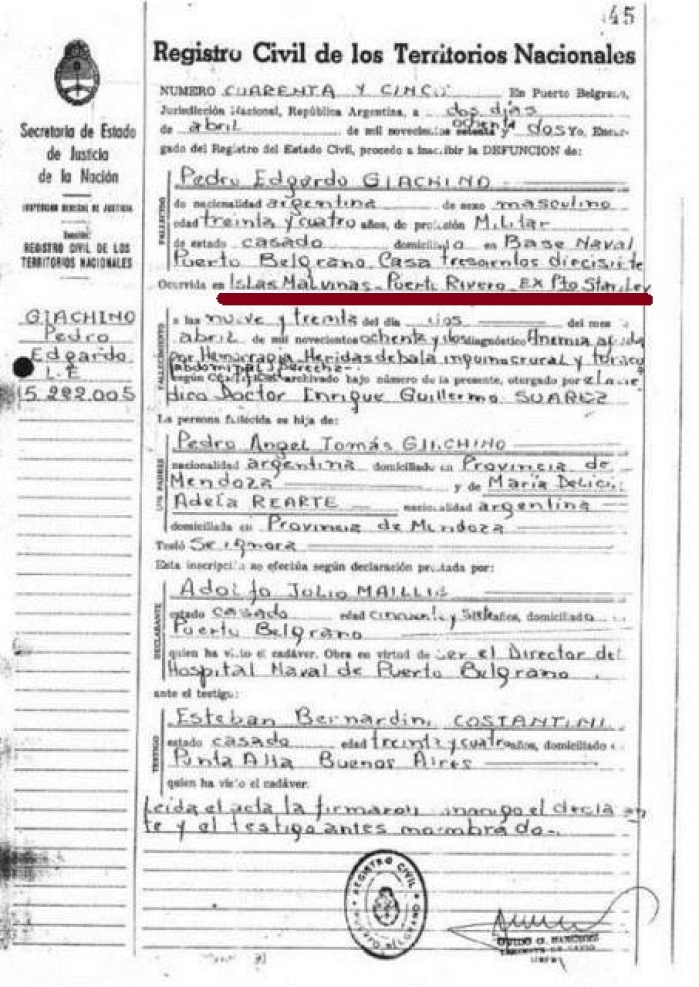 45
Registro Civil de los Territorios Nacionales
Secretaría de Estado
de Justicia
de la Nación
INSPECCION GENERAL DE JUSTICIA
REGISTRO CIVIL DE LOS
TERRITORIOS NACIONALES
GIACHINO
Pedro
Edgardo
L.E
5.292.005
NUMERO CUARENTA Y CINCO En Puerto Belgrano,
Jurisdicción Nacional, República Argentina, a dos días
de abril de mil novecientos ochenta y dos yo, Encar-
gado del Registro del Estado Civil, procedo a inscribir la DEFUNCION de:
FALLECIDO
Pedro Edgardo GIACHINO
de nacionalidad argentina de sexo masculino
edad treinta y cuatro años, de profesión Militar
de estado casado domiciliado en Base Naval
Puerto Belgrano Casa trescientos diecisiete
Ocurrida en ISLAS MALVINAS - Puerto Rivero EX Pto Stanley
FALLECIMIENTO
a las nueve y treinta del día dos del mes
abril de mil novecientos ochenta y dos diagnóstico Anemia aguda
por Hemorragia Heridas de bala inguinocrural y toraco
abdominal derecha
según archivado bajo número de la presente, otorgado por el
dico Doctor Enrique Guillermo SUAREZ
La persona fallecida es hija de:
SUS PADRES
Pedro Angel Tomás GIACHINO
nacionalidad argentina domiciliado en Provincia de
Mendoza y de María Delicia
Adela REARTE nacionalidad argentina
domiciliada en Provincia de Mendoza
Testó Se ignora
Esta inscripción se efectúa según declaración prestada por:
DECLARANTE
Adolfo Julio MAILLIE
estado casado edad cincuenta y siete años, domiciliado
Puerto Belgrano
quien ha visto el cadáver. Obra en virtud de ser el Director del
Hospital Naval de Puerto Belgrano
ante el testigo:
TESTIGO
Esteban Bernardin COSTANTINI
estado casado edad treinta y cuatro años, domiciliado
Punta Alta Buenos Aires
quien ha visto el cadáver.
Leída el acta la firmaron conmigo el declaran
te y el testigo antes nombrado.
REGISTRO CIVIL
PUERTO BELGRANO